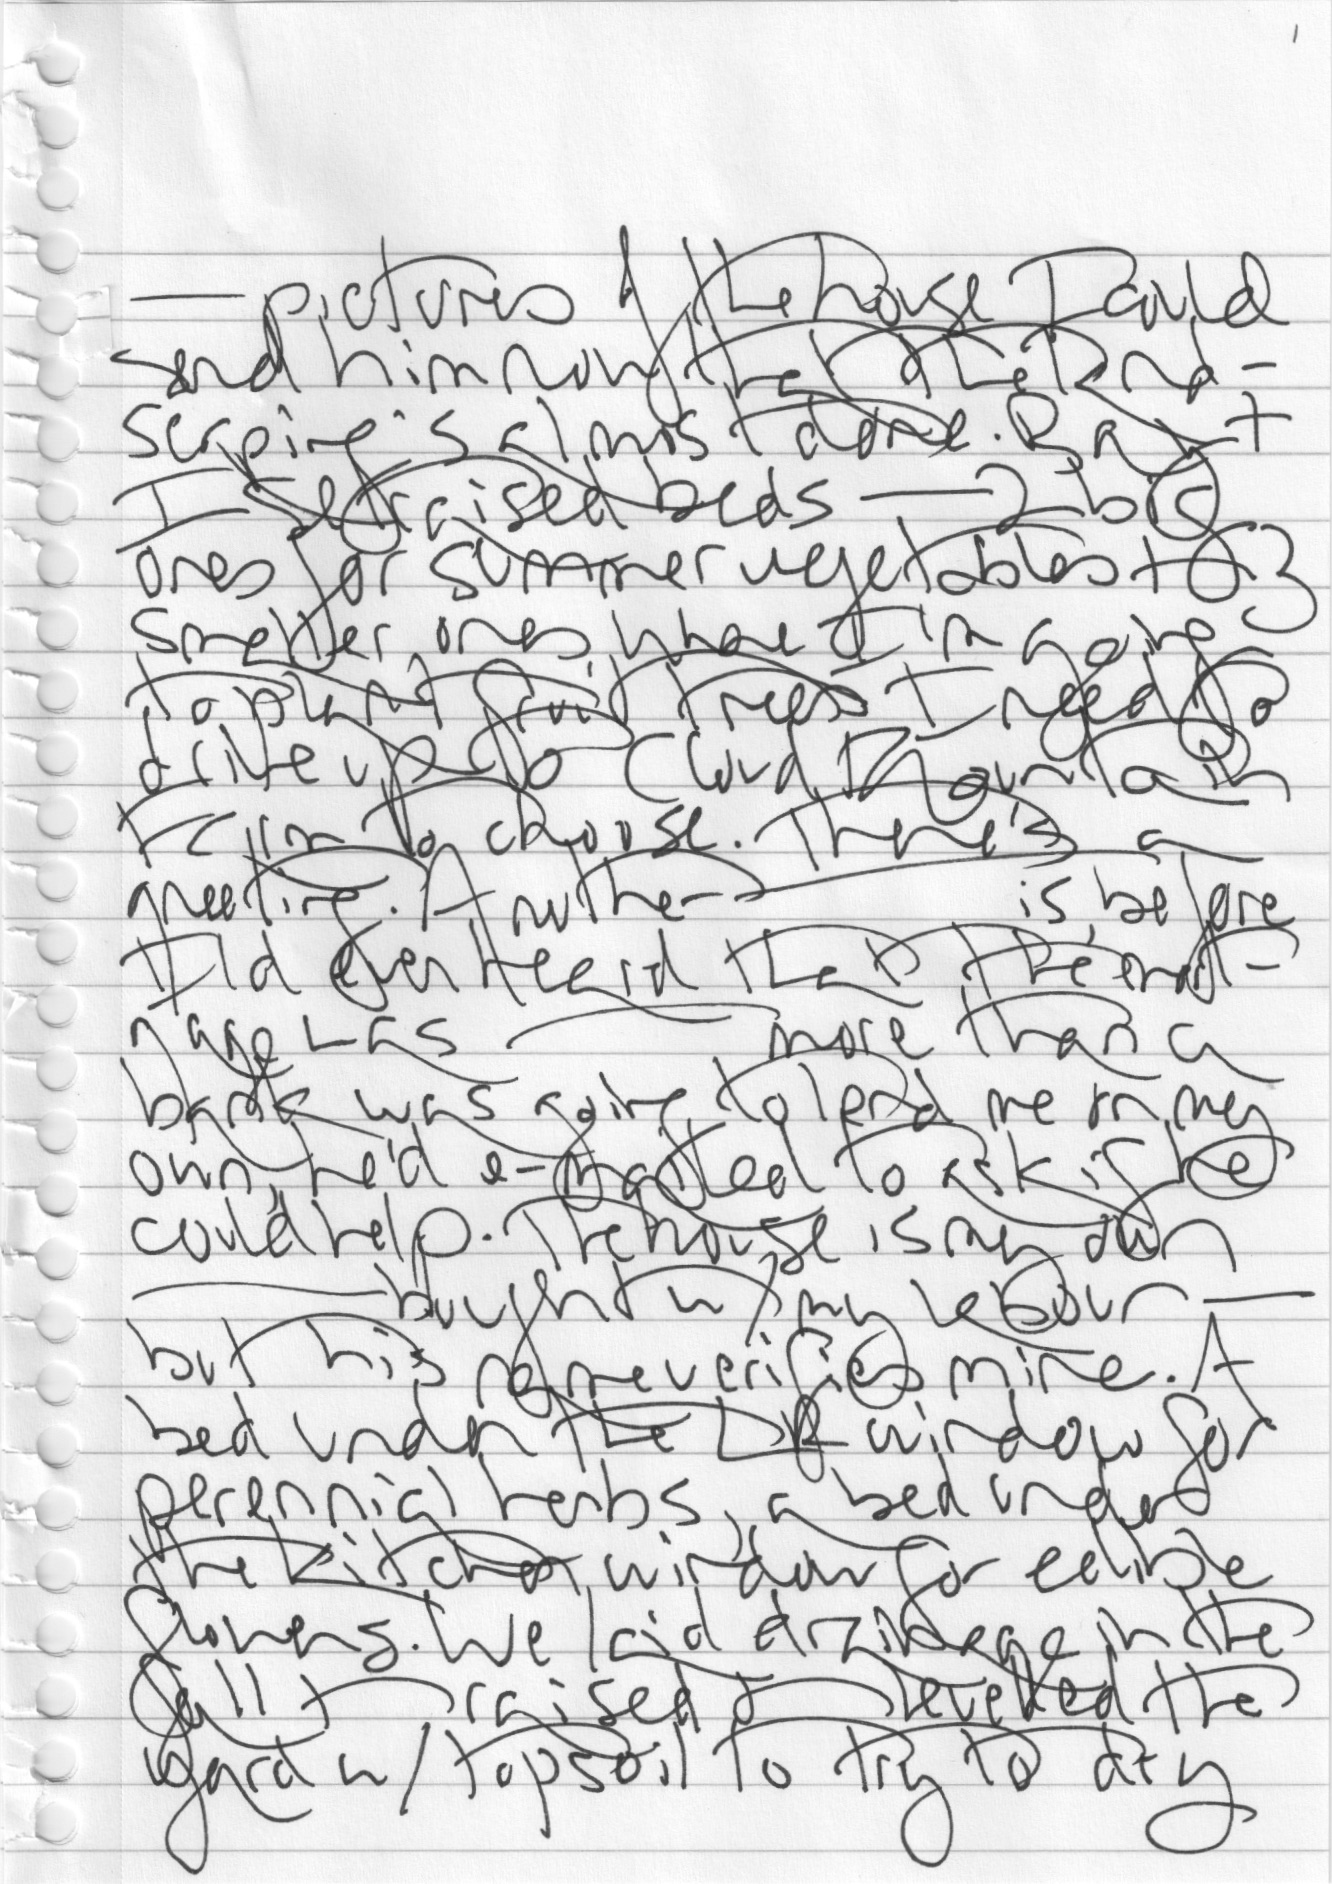 1
— pictures of the house I could
send him now that the land-
scaping's almost done. Ray +
I set raised beds — 2 big
ones for summer vegetables + 3
smaller ones, where I'm going
to plant fruit trees I need to
drive up to Cloud Mountain
Farm to choose. There's a
greeting. Another — is, before
I'd ever heard that the mort-
gage was — more than a
bank was going to lend me on my
own, he'd e-mailed to ask if he
could help. The house is my own
— bought w/ my labour —
but his name verifies mine. A
bed under the LR window for
perennial herbs, a bed under
the kitchen window for edible
flowers. We laid drainage in the
fall + raised + levelled the
yard w/ topsoil to try to dry